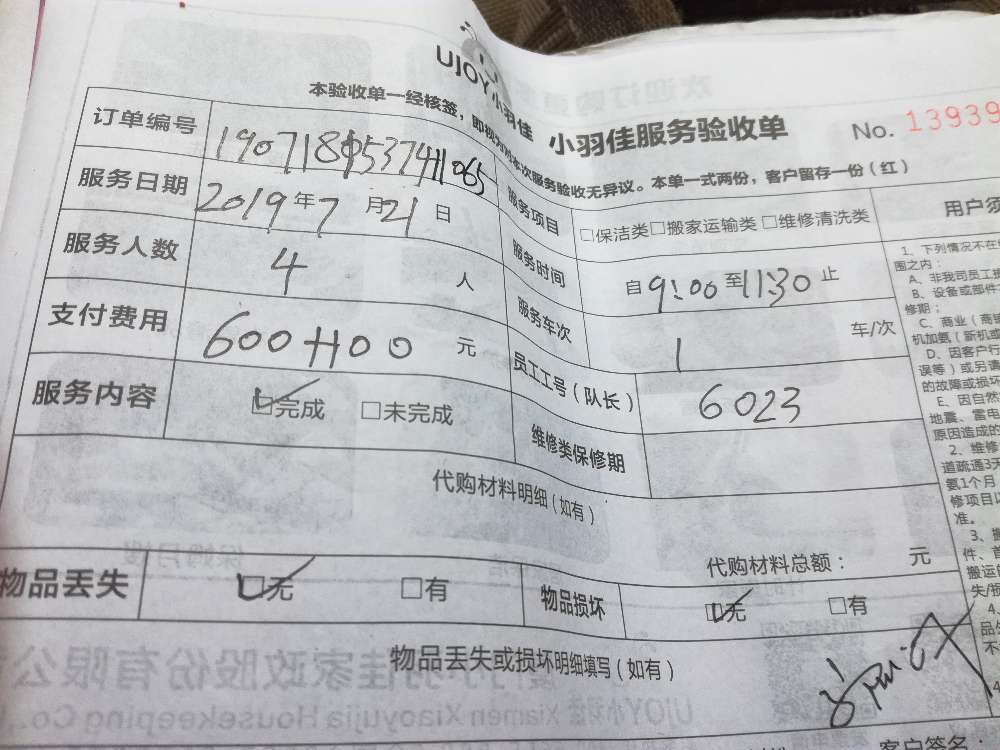 UJOY小羽佳 小羽佳服务验收单 No. 13939
本验收单一经核签,即 本次服务验收无异议。本单一式两份,客户留存一份(红)
订单编号 服务项目 □保洁类□搬家运输类□维修清洗类
服务日期 2019年7月21日 服务时间 自9:00至11:30止
服务人数 4 人 服务车次 1 车/次
支付费用 600+100 元 员工工号(队长) 6023
服务内容 □完成 □未完成 维修类保修期
代购材料明细(如有)
代购材料总额: 元
物品丢失 □无 □有 物品损坏 □无 □有
物品丢失或损坏明细填写(如有)
客户签名:
用户须
1、下列情况不在
围之内:
A、非我司员工
B、设备或部件
修期;
C、商业(商
机加氨(新机或
D、因客户行
误等)或另请
的故障或损坏
E、因自然
地震、雷电
原因造成的
2、维修
道疏通3天
氨1个月
修项目
准。
3、搬
件、首
搬运
失/损
4、
品
不